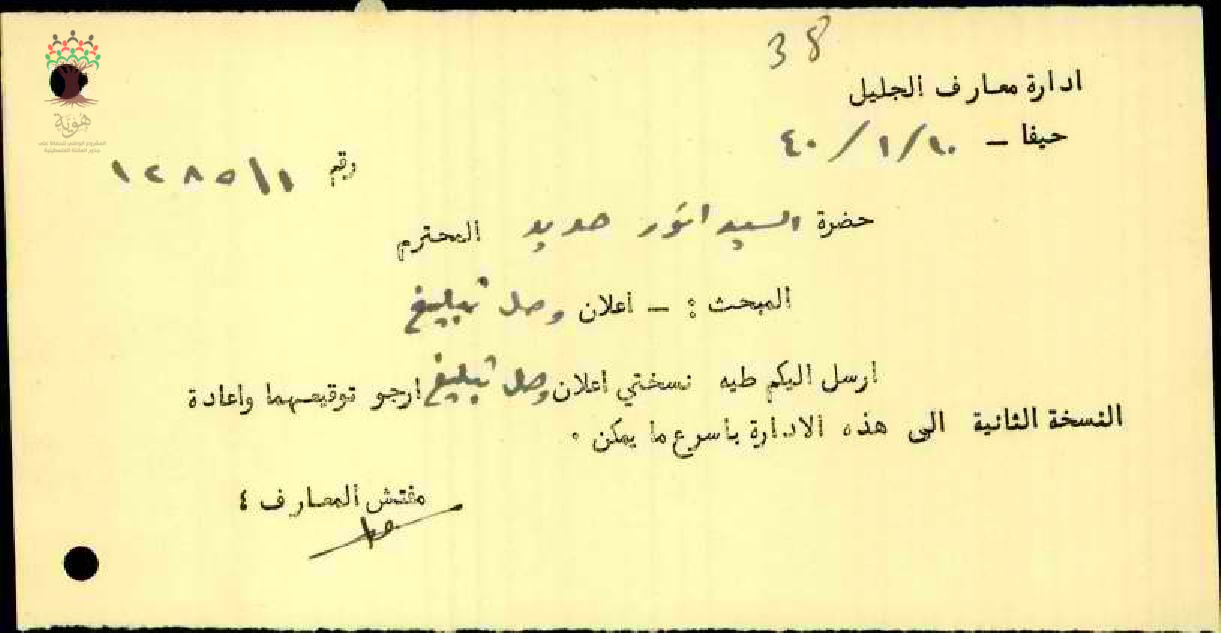 38
ادارة معارف الجليل
حيفا – ١٠/١/٤٠
رقم ١٢٨٥/١١
حضرة السيد انور حديد المحترم
المبحث : – اعلان وصل تبليغ
ارسل اليكم طيه نسختي اعلان وصل تبليغ ارجو توقيعهما واعادة
النسخة الثانية الى هذه الادارة باسرع ما يمكن ٠
مفتش المعارف ٤
هوية